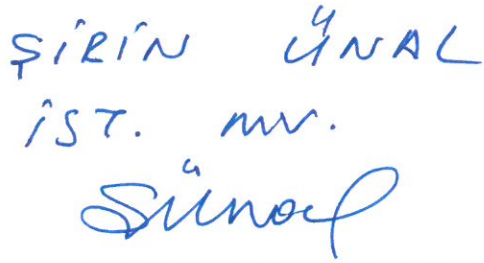 ŞİRİN ÜNAL
İST. MV.
SÜnal